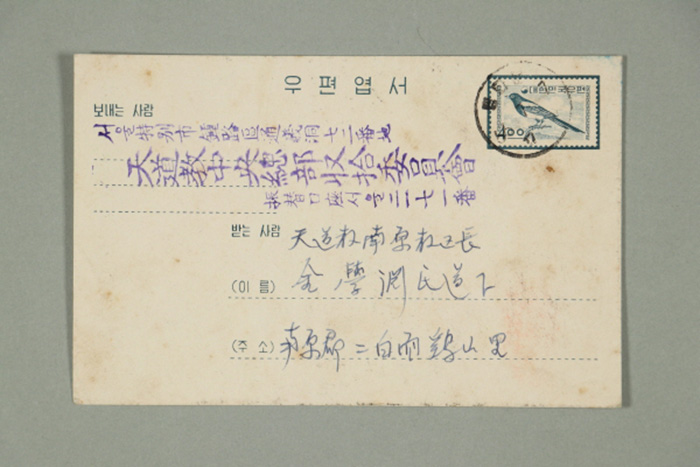 우편엽서
대한민국우편
4.00
보내는 사람
서울特別市鍾路區通義洞七二番地
天道教中央總部収拾委員會
振替口座서울二七一番
받는 사람 天道教南原教区長
(이 름) 金學淵氏道下
(주 소) 南原郡 二白面 鷄山里